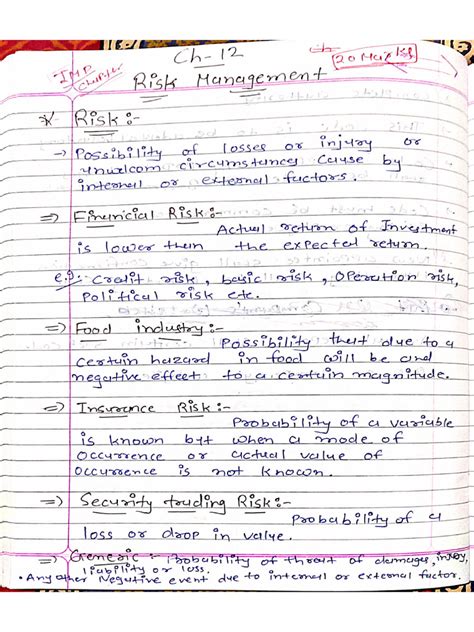 Ch-12
IMP Chapter
20 Marks
Risk Management
* Risk :-
→ Possibility of losses or injury or
unwelcom circumstances cause by
internal or external factors.
⇒ Financial Risk :-
Actual return of Investment
is lower then the expected return.
e.g: Credit risk, basic risk, Operation risk,
Political risk etc.
⇒ Food industry :-
Possibility that due to a
certain hazard in food will be and
negative effect to a certain magnitude.
⇒ Insurance Risk :-
Probability of a variable
is known but when a mode of
occurrence or actual value of
occurrence is not known.
⇒ Security trading Risk :-
Probability of a
loss or drop in value.
⇒ Generic :- Probability of threat of damages, injury,
liability or loss.
• Any other Negative event due to internal or external factor.